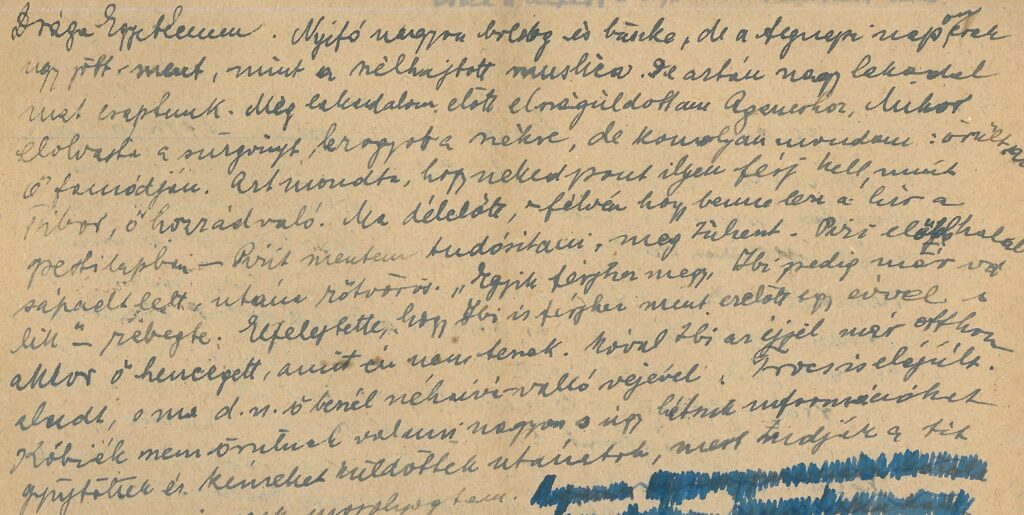 Drága Egyetlenem. Nyitó nagyon boldog és büszke, de a tegnapi nap őneki
ugy jött-ment, mint a félhajtott muslica. De aztán nagy lakodal
mat csaptunk. Még lakodalom előtt elszáguldottam Ágneshez, Mikor
elolvasta a sürgönyt, leragyott a székre, de komolyan mondom: örült, az
ő famódján. Azt mondta, hogy neked pont ilyen férj kell, mint
Tibor, ő hozzád való. Ma délelőtt, félvén hogy benne lesz a hír a
pesti lapban — Pirit mentem tudósítani, meg Zsikent. Piri előbb halál
sápadt lett, utána rötvörös. „Egyik férjhez megy, Ibi pedig már vá
lik" — rebegte. Elfelejtette, hogy Ibi is férjhez ment ezelőtt egy évvel s
akkor ő hencegett, amit én nem teszek. Szóval Ibi az éjjel már otthon
aludt, s ma d.n. ő beszél néhai-való vejével. Frocsis elájúlt.
Kóbiék nem örültek valami nagyon s úgy látszik információkat
gyűjtöttek és kémeket küldöttek utánatok, mert tudják a tit
mosolyogtam.